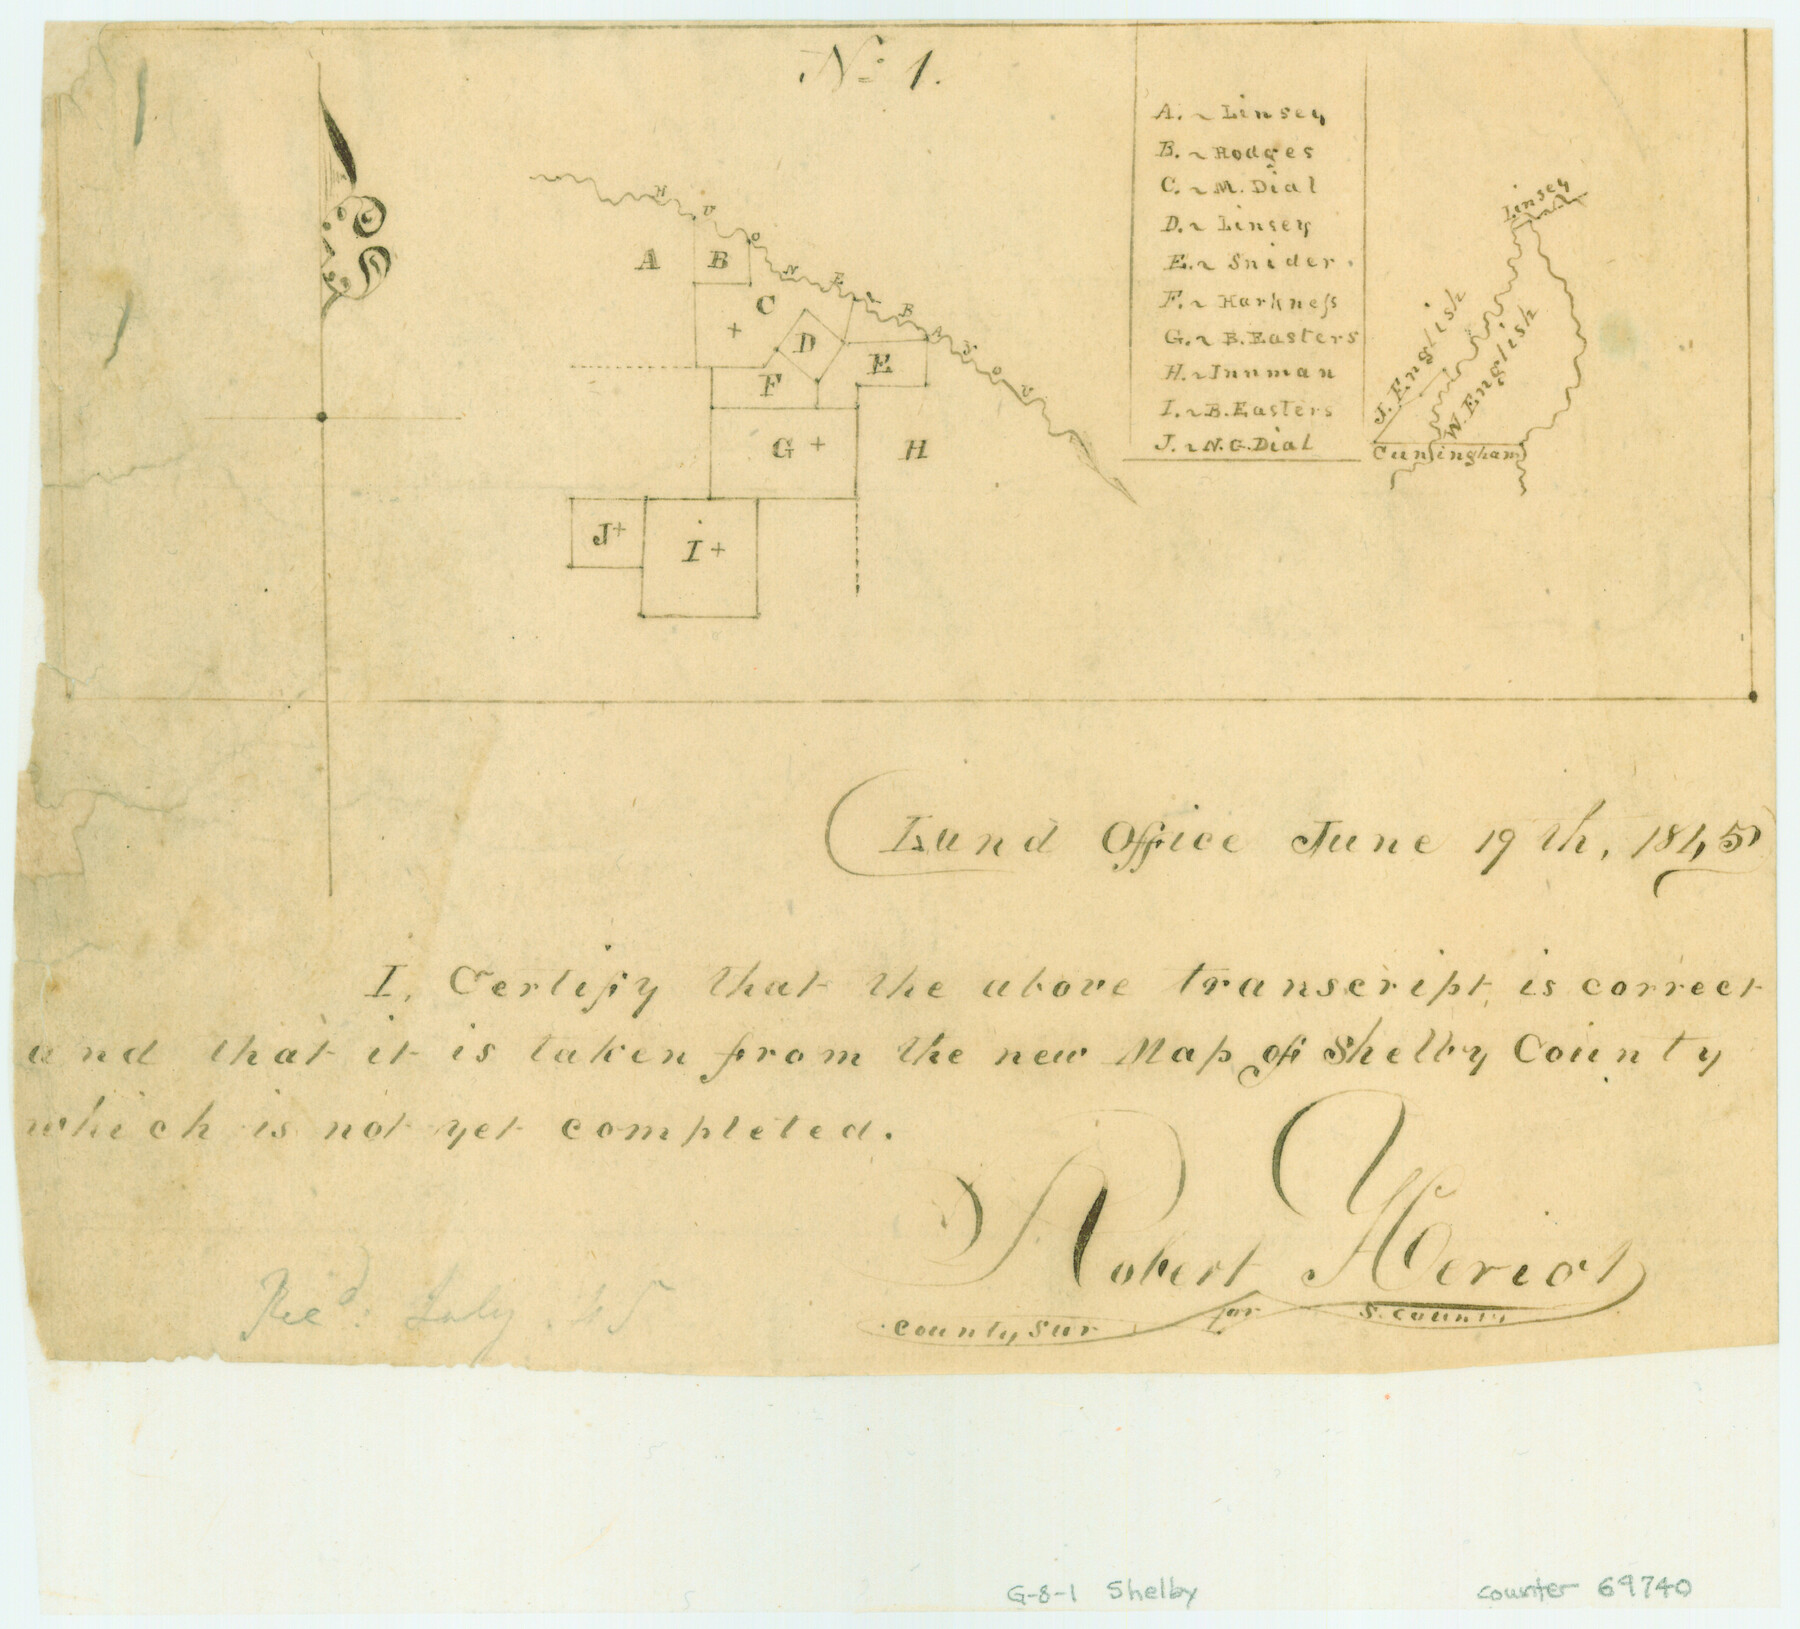 No 1.
A. ~ Linsey
B. ~ Hodges
C. ~ M. Dial
D. ~ Linsey
E. ~ Snider.
F. ~ Harkneſs
G. ~ B. Easters
H. ~ Innman
I. ~ B. Easters
J. ~ N. G. Dial
HURONE BAJOU
A
B
C
D
E
F
G
H
J
I
Linsey
J. English
W. English
Cuningham
Land Office June 19th, 1845
I, Certify that the above transcript is correct
and that it is taken from the new Map of Shelby County
which is not yet completed.
Robert Heriot
County Sur for S. County
Recd. July 45
G-8-1 Shelby
counter 69740